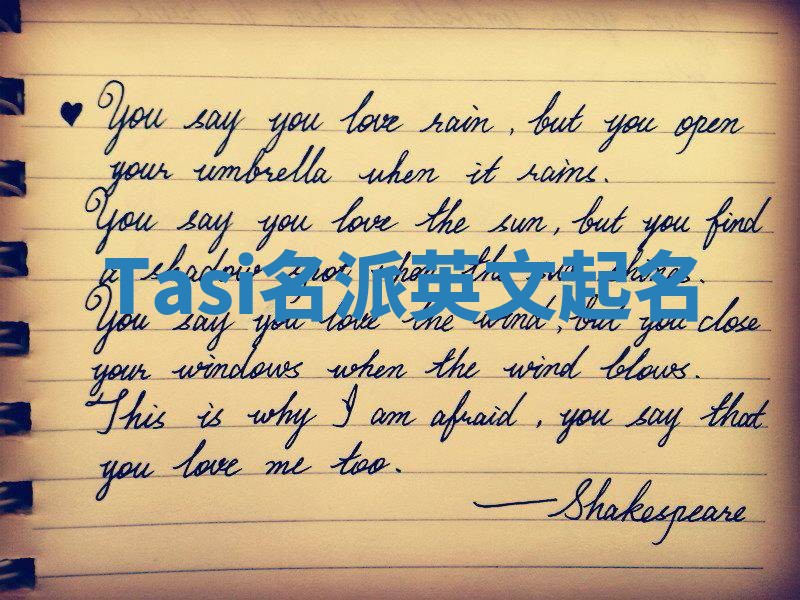 ♥ You say you love rain, but you open
your umbrella when it rains.
You say you love the sun, but you find
a shadow spot when the sun shines.
Tasi名派英文起名
You say you love the wind, but you close
your windows when the wind blows.
This is why I am afraid, you say that
you love me too.
—Shakespeare